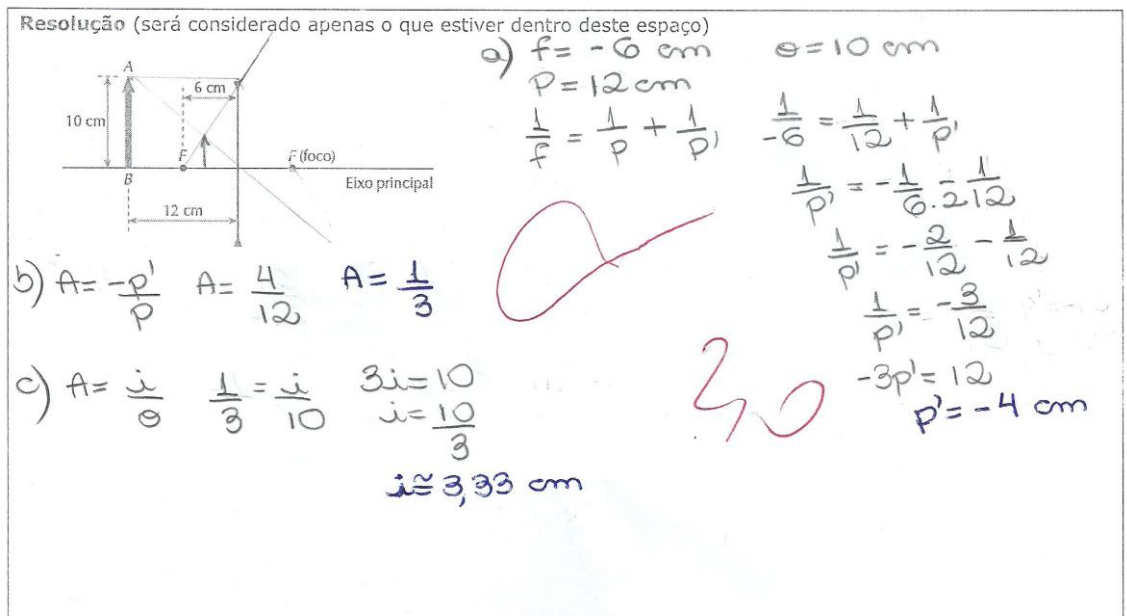 Resolução (será considerado apenas o que estiver dentro deste espaço)
A
6 cm
10 cm
F
F (foco)
B
Eixo principal
12 cm
a) f = -6 cm o = 10 cm
p = 12 cm
1/f = 1/p + 1/p' 1/-6 = 1/12 + 1/p'
1/p' = -1/6.2 - 1/12
1/p' = -2/12 - 1/12
1/p' = -3/12
-3p' = 12
p' = -4 cm
b) A = -p'/p A = 4/12 A = 1/3
c) A = i/o 1/3 = i/10 3i = 10
i = 10/3
i ≅ 3,33 cm
3,0